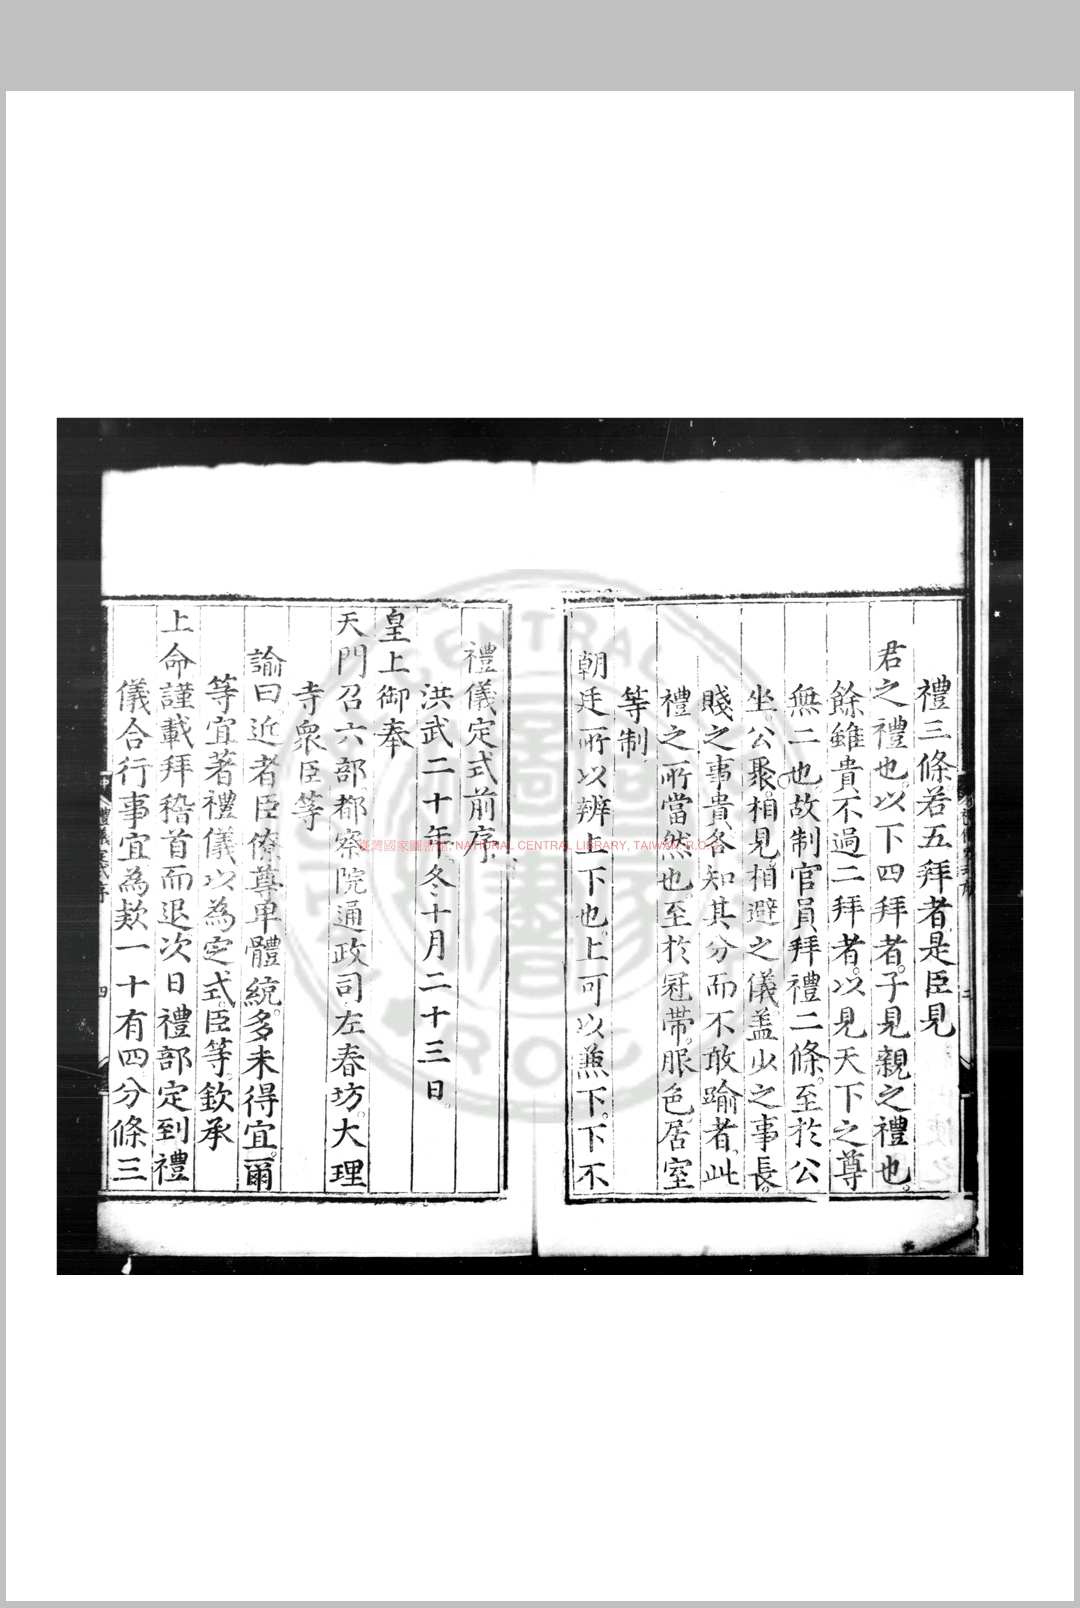 禮三條若五拜者是臣見
君之禮也。以下四拜者。子見親之禮也。
餘雖貴不過二拜者。以見天下之尊
無二也。故制官員拜禮二條。至於公
坐。公聚。相見。相避之儀。盖少之事長。
賤之事貴。各知其分而不敢踰者。此
禮之所當然也。至於冠帶。服色。居室
等制。
朝廷所以辨上下也。上可以兼下。下不
禮儀定式前序
洪武二十年冬十月二十三日。
皇上御奉
天門召六部都察院通政司左春坊。大理
寺衆臣等
諭曰近者臣僚尊卑體統。多未得宜。爾
等宜著禮儀以為定式。臣等欽承
上命謹載拜稽首而退次日禮部定到禮
儀合行事宜為欵一十有四分條三
禮儀定式序
四
臺灣國家圖書館, NATIONAL CENTRAL LIBRARY, TAIWAN R.O.C
CENTRAL
R.O.C